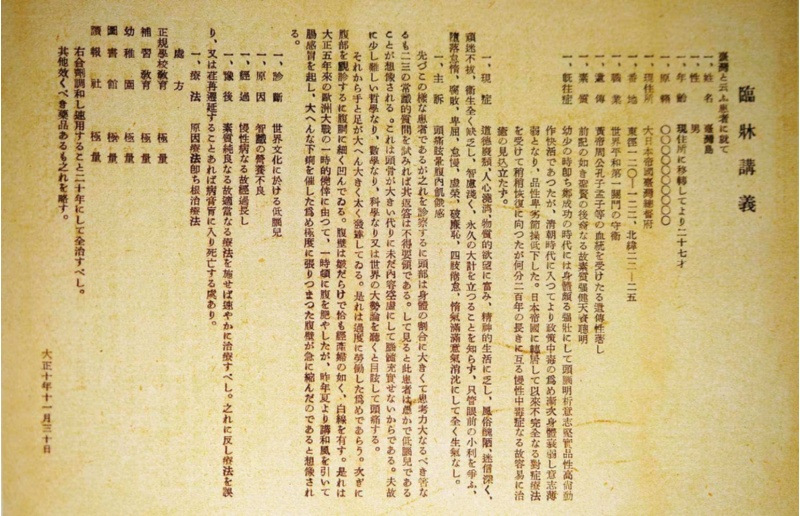 臨牀講義
臺灣と云ふ患者に就て
一、姓名　臺灣島
一、性　男
一、年齡　現住所に移轉してより二十七才
一、原籍　〇〇〇〇〇〇〇〇
一、現住所　大日本帝國臺灣總督府
一、番地　東經一二〇―一二二、北緯二二―二五
一、職業　世界平和第一關門の守衞
一、遺傳　黄帝周公孔子孟子等の血統を受けたる遺傳性著し
一、素質　前記の如き聖賢の後裔なる故素質強健天資聰明
一、既往症　幼少の時即ち鄭成功の時代には身體頗る強壯にして頭腦明析意志堅實品性高尚動
作快活であつたが、清朝時代に入つてより政策中毒の爲め漸次身體衰弱し意志薄
弱となり、品性卑劣節操低下した。日本帝國に轉居して以來不完全なる對症療法
を受けて稍稍恢復に向つたが何分二百年の長きに亙る慢性中毒症なる故容易に治
癒の見込立たず。
一、現症　道德廢頽、人心澆漓、物質的欲望に富み、精神的生活に乏し、風俗醜陋、迷信深く、
頑迷不拔、衞生全く缺乏し、智慮淺く、永久の大計を立つることを知らず、只管眼前の小利を爭ふ、
墮落怠惰、腐敗、卑屈、怠慢、虚榮、破廉恥、四肢倦怠、惰氣滿滿意氣消沈にして全く生氣なし。
一、主訴　頭痛眩暈腹内飢餓感
先づこの樣な患者であるが之れを診察するに頭部は身體の割合に大きくて思考力大なるべき筈な
るも二三の常識的質問を試みれば其返答は不得要領である。して見ると此患者は愚かで低腦兒である
ことが想像される。これは頭骨が大きい代りに未だ内容空虚にして腦髓充實せないからである。夫故
に少し難しい哲學なり、數學なり、科學なり又は世界の大勢論を聽くと目眩して頭痛する。
それから手と足が大へん大きく太く發達してゐる。是れは過度に勞働した爲めであらう。次ぎに
腹部を觀診するに腹側に細く凹んでゐる。腹壁は皺だらけで恰も經産婦の如く、白線を有す。是れは
大正五年來の歐洲大戰の一時的僥倖に由つて、一時頓に腹を肥やしたが、昨年夏より講和風を引いて
腸感冒を起し、大へんな下痢を催した爲め極度に張りつまつた腹壁が急に縮んだのであると想像され
る。
一、診斷　世界文化に於ける低腦兒
一、原因　智識の營養不良
一、經過　慢性病なる故經過長し
一、豫後　素質純良なる故適當なる療法を施せば速やかに治療すべし。之れに反し療法を誤
り、又は荏再遷延することあれば病膏肓に入り死亡する處あり。
一、療法　原因療法即ち根治療法
處方
正規學校敎育　極量
補習敎育　極量
幼稚園　極量
圖書館　極量
讀報社　極量
右合劑調和し連用すること二十年にして全治すべし。
其他效くべき藥品あるも之れを略す。
大正十年十一月三十日